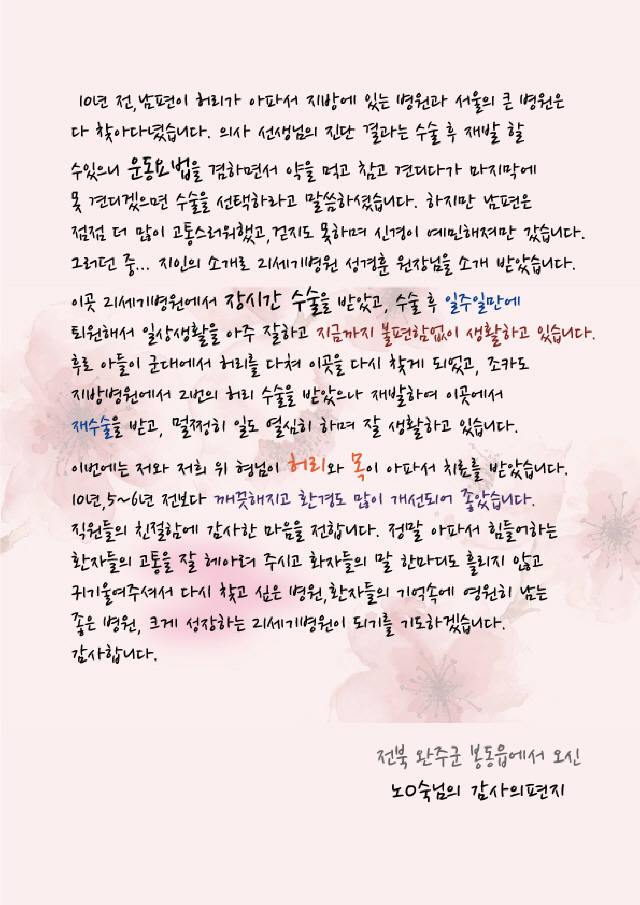 10년 전,남편이 허리가 아파서 지방에 있는 병원과 서울의 큰 병원은
다 찾아다녔습니다. 의사 선생님의 진단 결과는 수술 후 재발 할
수있으니 운동요법을 겸하면서 약을 먹고 참고 견디다가 마지막에
못 견디겠으면 수술을 선택하라고 말씀하셨습니다. 하지만 남편은
점점 더 많이 고통스러워했고,걷지도 못하며 신경이 예민해져만 갔습니다.
그러던 중... 지인의 소개로 21세기병원 성경훈 원장님을 소개 받았습니다.
이곳 21세기병원에서 장시간 수술을 받았고, 수술 후 일주일만에
퇴원해서 일상생활을 아주 잘하고 지금까지 불편함없이 생활하고 있습니다.
후로 아들이 군대에서 허리를 다쳐 이곳을 다시 찾게 되었고, 조카도
지방병원에서 2번의 허리 수술을 받았으나 재발하여 이곳에서
재수술을 받고, 멀쩡히 일도 열심히 하며 잘 생활하고 있습니다.
이번에는 저와 저희 위 형님이 허리와 목이 아파서 치료를 받았습니다.
10년,5~6년 전보다 깨끗해지고 환경도 많이 개선되어 좋았습니다.
직원들의 친절함에 감사한 마음을 전합니다. 정말 아파서 힘들어하는
환자들의 고통을 잘 헤아려 주시고 화자들의 말 한마디도 흘리지 않고
귀기울여주셔서 다시 찾고 싶은 병원,환자들의 기억속에 영원히 남는
좋은 병원, 크게 성장하는 21세기병원이 되기를 기도하겠습니다.
감사합니다.
전북 완주군 봉동읍에서 오신
노O숙님의 감사의편지